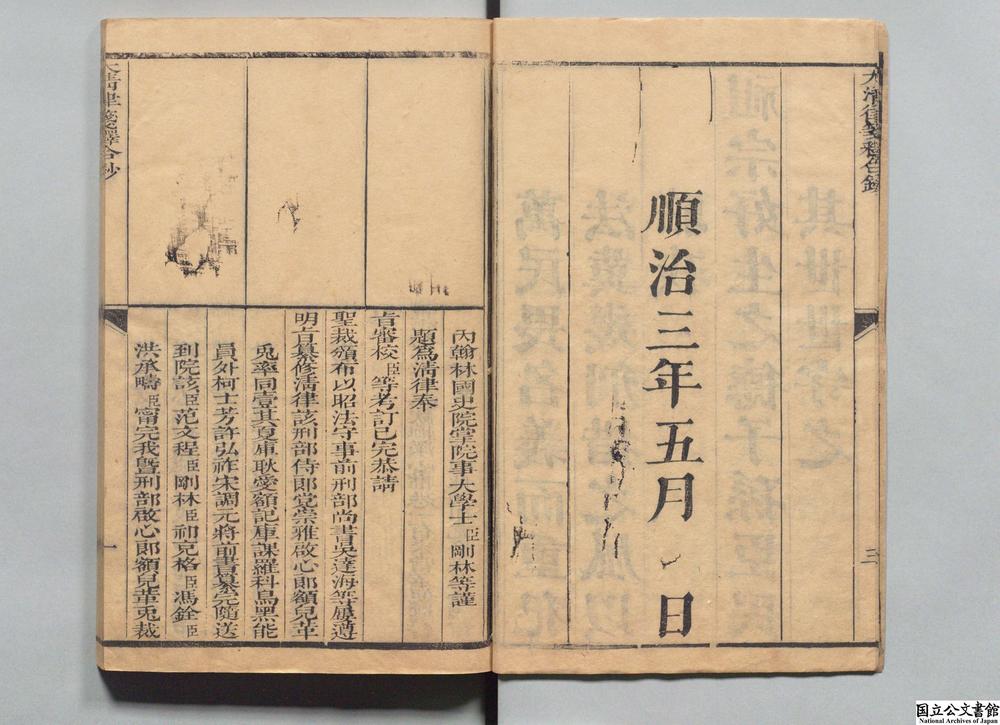 大清律箋釋合鈔
三
順治三年五月 日
內翰林國史院掌院事大學士臣剛林等謹
題爲清律奉
旨審校臣等考訂已完恭請
聖裁頒布以昭法守事前刑部尚書吳達海等屢遵
明旨纂修清律該刑部侍郎党崇雅啟心郎額兒革
兎率同壹其夏庫耿愛額記庫課羅科烏黑能
員外柯士芳許弘祚宋調元將前書纂完隨送
到院該臣范文程臣剛林臣祁充格臣馮銓臣
洪承疇臣甯完我曁刑部啟心郎額兒革兎裁
大清律箋釋合鈔
一
国立公文書館
National Archives of Japan